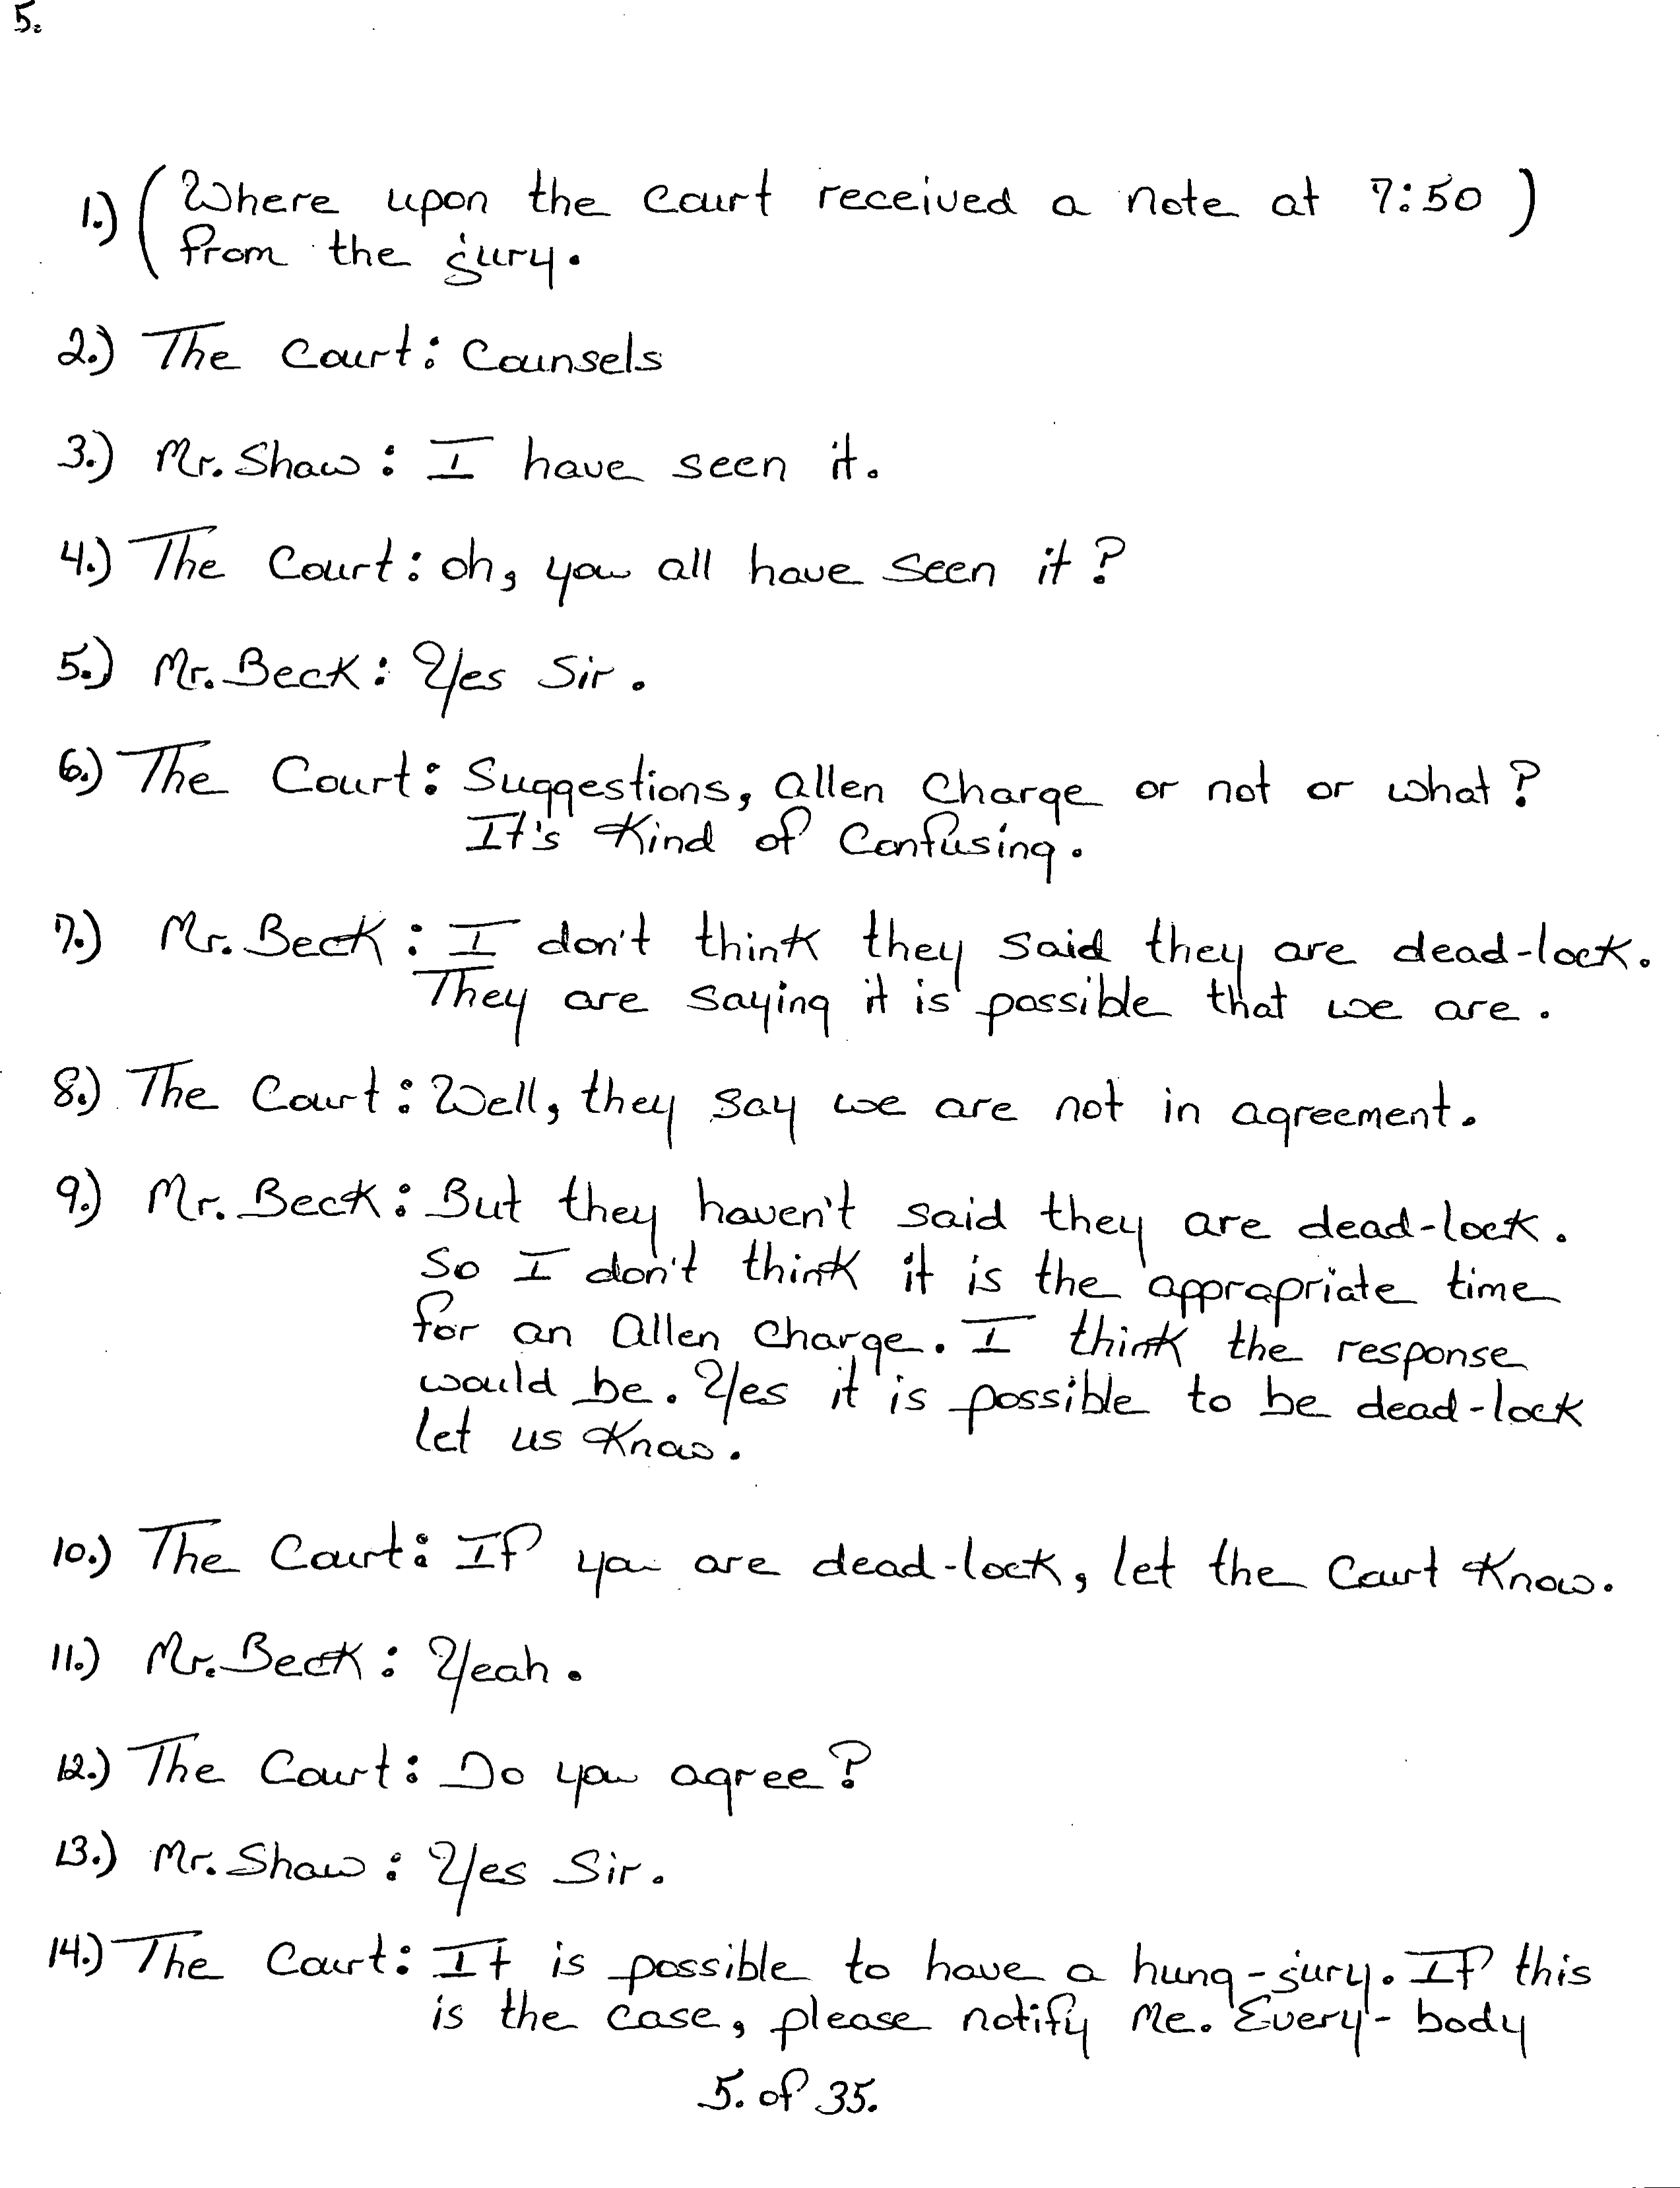 5.
1.) (Where upon the Court received a note at 7:50)
from the jury.
2.) The Court: Counsels
3.) Mr. Shaw: I have seen it.
4.) The Court: oh, you all have seen it?
5.) Mr. Beck: Yes Sir.
6.) The Court: Suggestions, Allen Charge or not or what?
It's Kind of Confusing.
7.) Mr. Beck: I don't think they said they are dead-lock.
They are saying it is possible that we are.
8.) The Court: Well, they say we are not in agreement.
9.) Mr. Beck: But they haven't said they are dead-lock.
So I don't think it is the appropriate time
for an Allen Charge. I think the response
would be. Yes it is possible to be dead-lock
let us Know.
10.) The Court: If you are dead-lock, let the Court Know.
11.) Mr. Beck: Yeah.
12.) The Court: Do you agree?
13.) Mr. Shaw: Yes Sir.
14.) The Court: It is possible to have a hung-jury. If this
is the case, please notify Me. Every-body
5. of 35.